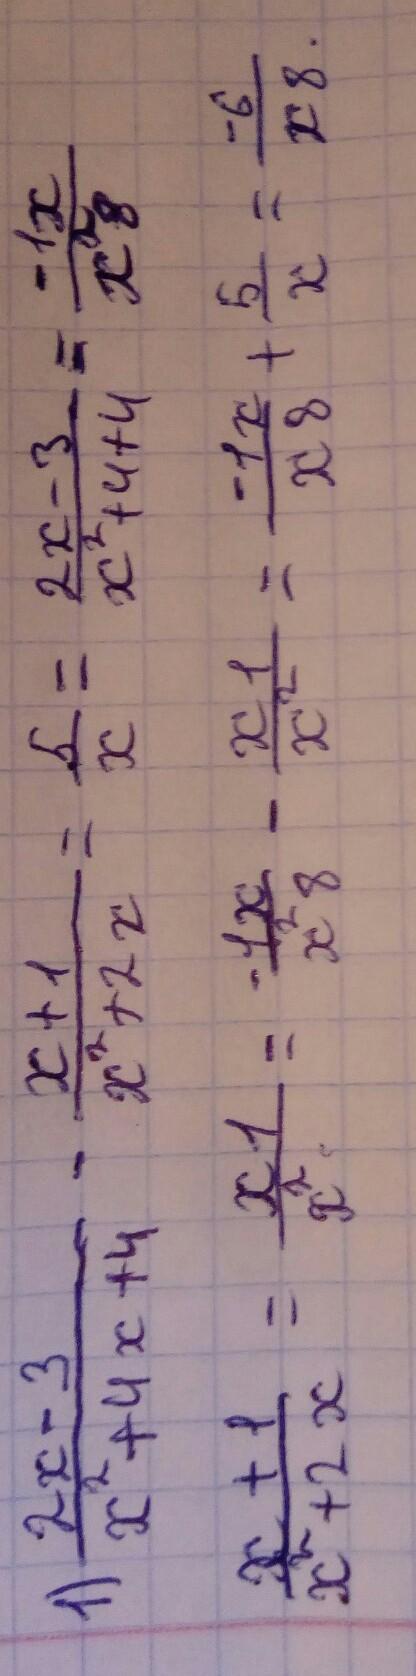 1) (2x-3)/(x²+4x+4) - (x+1)/(x²+2x) = 5/x = (2x-3)/(x²+4+4) = -1x/x²8
(x+1)/(x²+2x) = x1/x² = -1x/x²8 - x1/x² = -1x/x8 + 5/x = -6/x8.